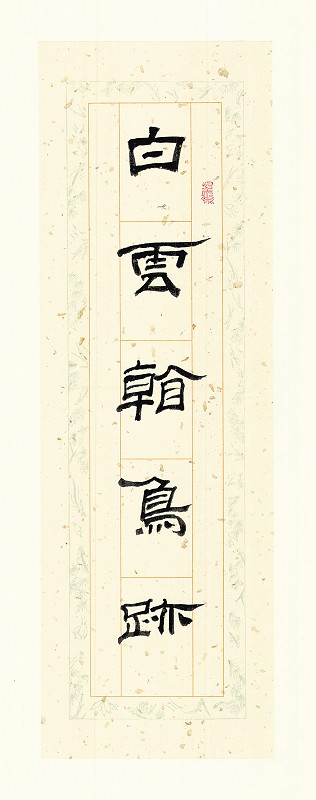 白雲鳥跡